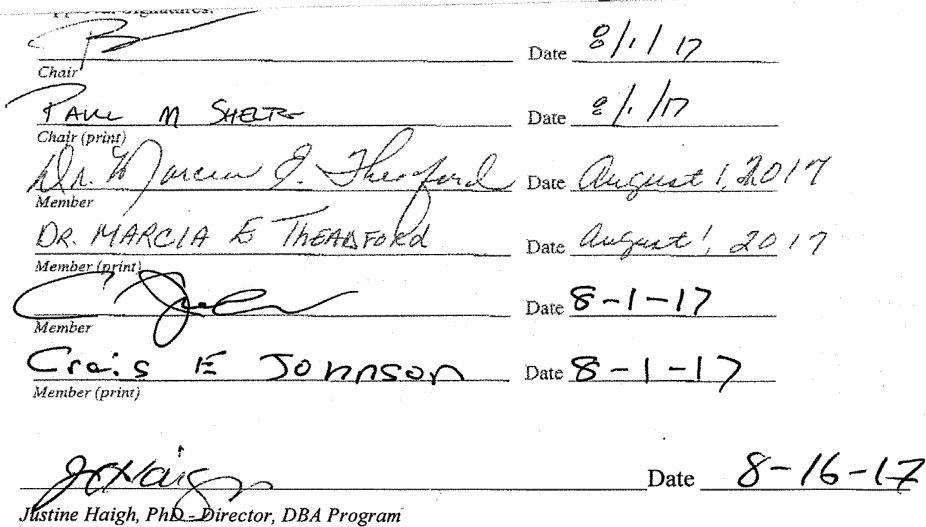 Approval Signatures:
Date 8/1/17
Chair
PAUL M SHELTON Date 8/1/17
Chair (print)
Dr. Marcia E. Theadford Date August 1, 2017
Member
DR. MARCIA E THEADFORD Date August 1, 2017
Member (print)
Date 8-1-17
Member
Craig E Johnson Date 8-1-17
Member (print)
J Haigh Date 8-16-17
Justine Haigh, PhD - Director, DBA Program